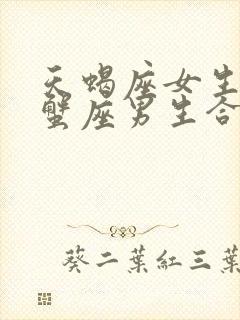 天蝎座女生
蟹座男生合
葵二葉紅三葉